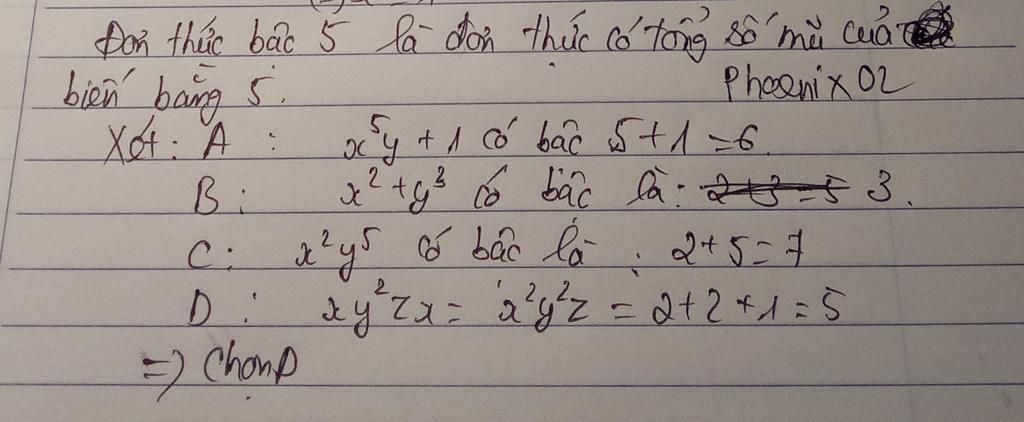 Đơn thức bậc 5 là đơn thức có tổng số mũ của
biến bằng 5.
Phoenix02
Xét: A : x⁵y + 1 có bậc 5+1=6.
B : x² + y³ có bậc là: 2+3=5 3.
C : x²y⁵ có bậc là : 2+5=7
D : xy²zx = x²y²z = 2+2+1=5
=> Chọn D